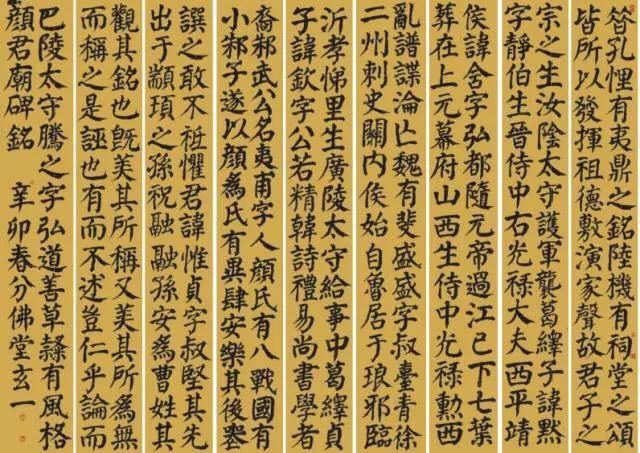 昝孔悝有夷鼎之銘陸機有祠堂之頌
皆所以發揮祖德敷演家聲故君子之
宗之生汝陰太守護軍襲葛繹子諱默
字靜伯生晉侍中右光祿大夫西平靖
侯諱含字弘都隨元帝過江已下七葉
葬在上元幕府山西生侍中光祿勳西
亂譜諜淪亡魏有斐盛盛字叔臺青徐
二州刺史關內侯始自魯居于琅邪臨
沂孝悌里生廣陵太守給事中葛繹貞
子諱欽字公若精韓詩禮易尚書學者
裔邾武公名夷甫字人顏氏有八戰國有
小邾子遂以顏爲氏有異肆安樂其後喪
譔之敢不祗懼君諱惟貞字叔堅其先
出于顓頊之孫祝融融孫安爲曹姓其
觀其銘也既美其所稱又美其所爲無
而稱之是誣也有而不述豈仁乎論而
巴陵太守騰之字弘道善草隸有風格
顏君廟碑銘 辛卯春分佛堂玄一